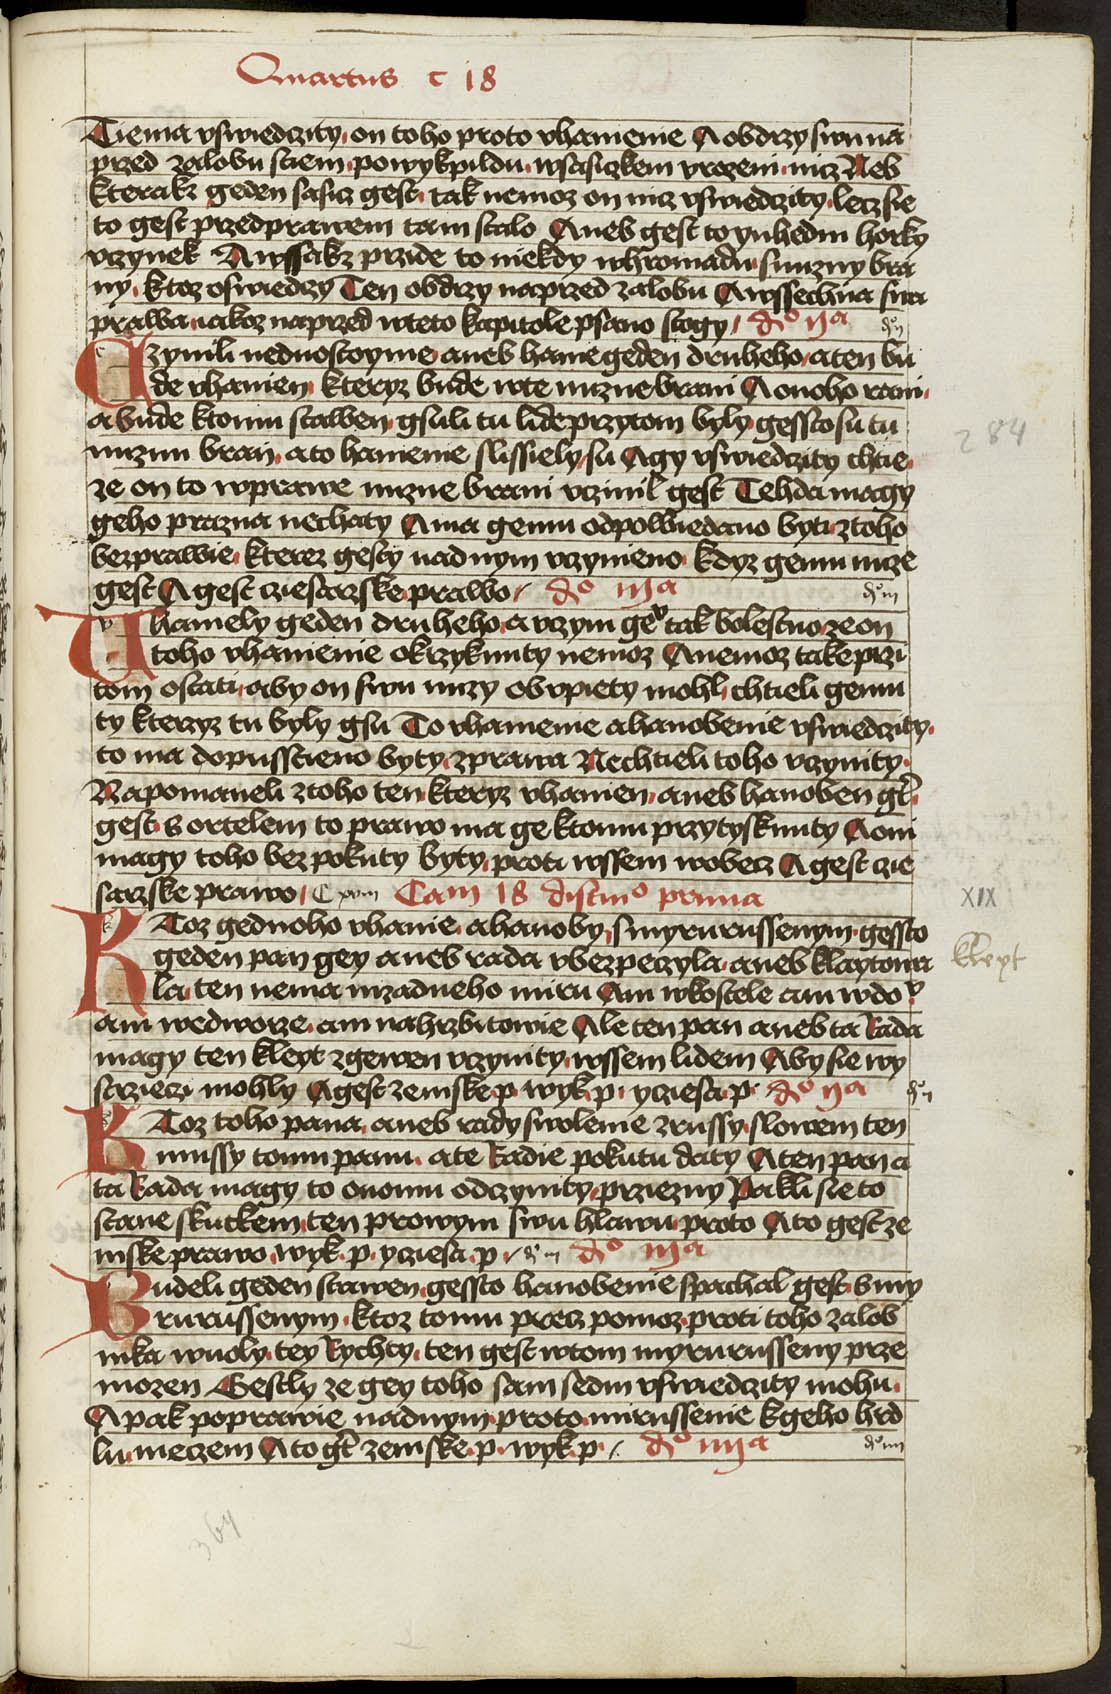 Quartus c 18
Tiema vswiedczity, on toho proto vhanienie A obdrzy swu na
przed zalobu sciem, powykpildu, wsasiczkem vrozeni nicz Neb
kterakz geden sasicz gest, tak nemoz on nicz vswiedczity, lecz sie
to gest przed prawem tam stalo Aneb gest to ynhedm horky
vczynek A wssakz przide to niekdy whromadu, s nuzny bra
ny, ktoz oswiedczy Ten obdrzy naprzed zalobu A wssechna swa
prawa, iakoz naprzed wteto kapitole psano stogy, do ija do ij
Czynili nednostoyme, aneb hanie geden druheho, a ten bu
de vhanien, kteryz bude wte nuzne brani A onoho rani,
a bude ktomu stawen, gsuli tu lide przytom byly, gessto su tu
nuznu bran, a to hanienie slissiely, su A gy vswiedczity chtie,
ze on to wprawe nuzne brani vczinil gest Tehda magy
geho prazna nechaty A ma gemu odpowiedano byti, ztoho
bezprawie, kterez gesty nad nym vczynieno, kdyz gemu nuze
gest A gest cziesarzske, prawo, do iija do iij
Vhaniely geden druheho, a vczyni geo tak bolestno, ze on
toho vhanienie okrzyknuty nemoz A nemoz take przi
tom ostati, aby on swu nuzy obvpiety mohl, chtieli gemu
ty kterzyz tu byly gsu To vhanienie a hanobenie vswiedczity,
to ma dopusstieno byty, zprawa Nechtieli toho vczynity,
Napomaneli ztoho ten, kteryz vhanien, aneb hanoben gt,
gest, s ortelem to prawo ma ge ktomu przytysknuty A oni
magy toho bez pokuty byty, proti wssem wobecz A gest czie
sarzske prawo, C xviii Cam 18 distinco prima
XIX
KToz gednoho vhanie, a hanoby, s myrurussenym, gessto
geden pan gey aneb rada vbezpeczyla, aneb klaytowa
kleyt
la, ten nema nizadneho miru Ani wkostele ani wdoo
ani wedworze, ani nahrzbitowie Ale ten pan aneb ta Rada
magy ten kleyt zgewen vczynity, wssem lidem Aby sie wy
strziecz mohly A gest zemske, p. wyk. p. y cziesa. p. do ija do ij
KToz toho pana, aneb rady swolenie zrussy, slowem ten
mussy tomu panu, a te Radie pokutu daty A ten pan a
ta Rada magy to onomu odczynity, prziezny Pakli sie to
stane skutkem, ten prowym swu hlawu, proto A to gest ze
mske prawo, wyk. p. y cziesa. p. do iij do iija
Budeli geden stawen, gessto hanobenie spachal gest, s my
rurussenym, ktoz tomu precz pomoz, proti toho zalob
nika wuoly, tey Rychty, ten gest wtom myrurusseny prze
mozen Gestly ze gey toho sam sedm vswiedczity mohu,
A pak poprawie nad nym, proto mirussenie kgeho hrd
lu, meczem A to gt zemske. p. wyk. p. do iiija do iiij
284
364